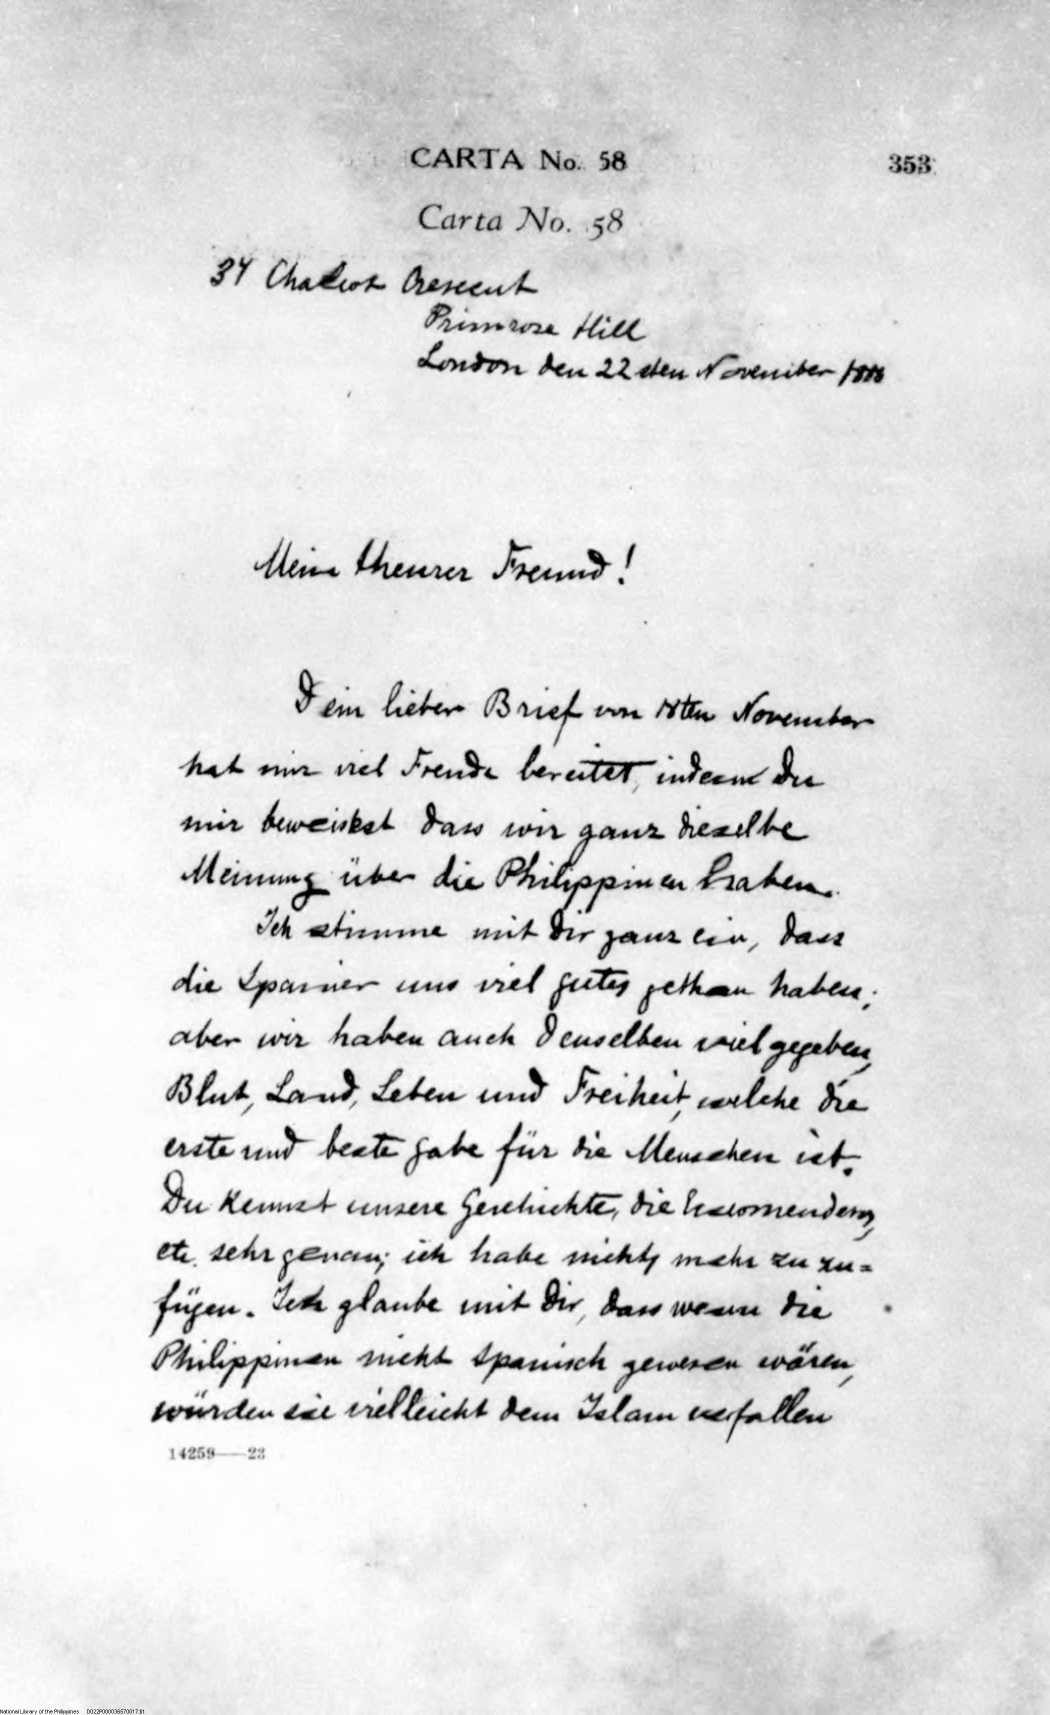 CARTA No. 58
353
Carta No. 58
37 Chalcot Crescent
Primrose Hill
London den 22sten November 1888
Mein theurer Freund!
Dein lieber Brief von 18ten November
hat mir viel Freude bereitet, indem Du
mir beweisest dass wir ganz dieselbe
Meinung über die Philippinen haben.
Ich stimme mit Dir ganz ein, dass
die Spanier uns viel gutes gethan haben;
aber wir haben auch denselben viel gegeben,
Blut, Land, Leben und Freiheit, welche die
erste und beste Gabe für die Menschen ist.
Du kennst unsere Geschichte, die Encomenderos,
etc. sehr genau; ich habe nichts mehr zu zu=
fügen. Ich glaube mit Dir, dass wenn die
Philippinen nicht spanisch gewesen wären,
würden sie vielleicht dem Islam verfallen
14259——23
National Library of the Philippines